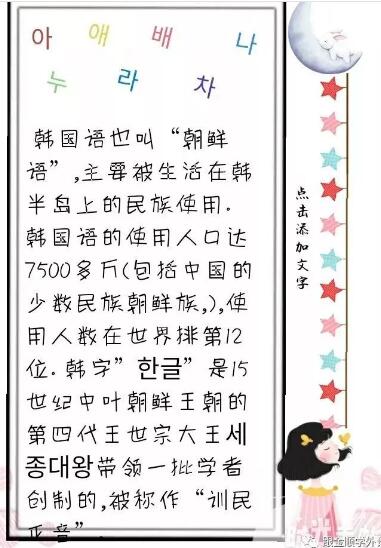 아 애 배 나
누 라 차
韩国语也叫“朝鲜
语”,主要被生活在韩
半岛上的民族使用.
韩国语的使用人口达
7500多万(包括中国的
少数民族朝鲜族,),使
用人数在世界排第12
位.韩字”한글”是15
世纪中叶朝鲜王朝的
第四代王世宗大王세
종대왕带领一批学者
创制的,被称作“训民
正音”.
点击添加文字
跟金顺学外